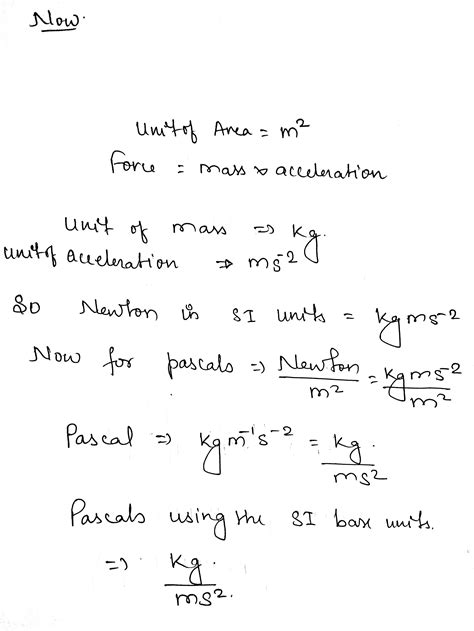 Now.
Unit of Area = m²
Force = mass × acceleration
Unit of mass => kg.
unit of acceleration => ms⁻²
So Newton in SI units = kg ms⁻²
Now for pascals => Newton/m² = kg ms⁻²/m²
Pascal => kg m⁻¹s⁻² = kg./ms²
Pascals using the SI base units.
=> kg./ms².